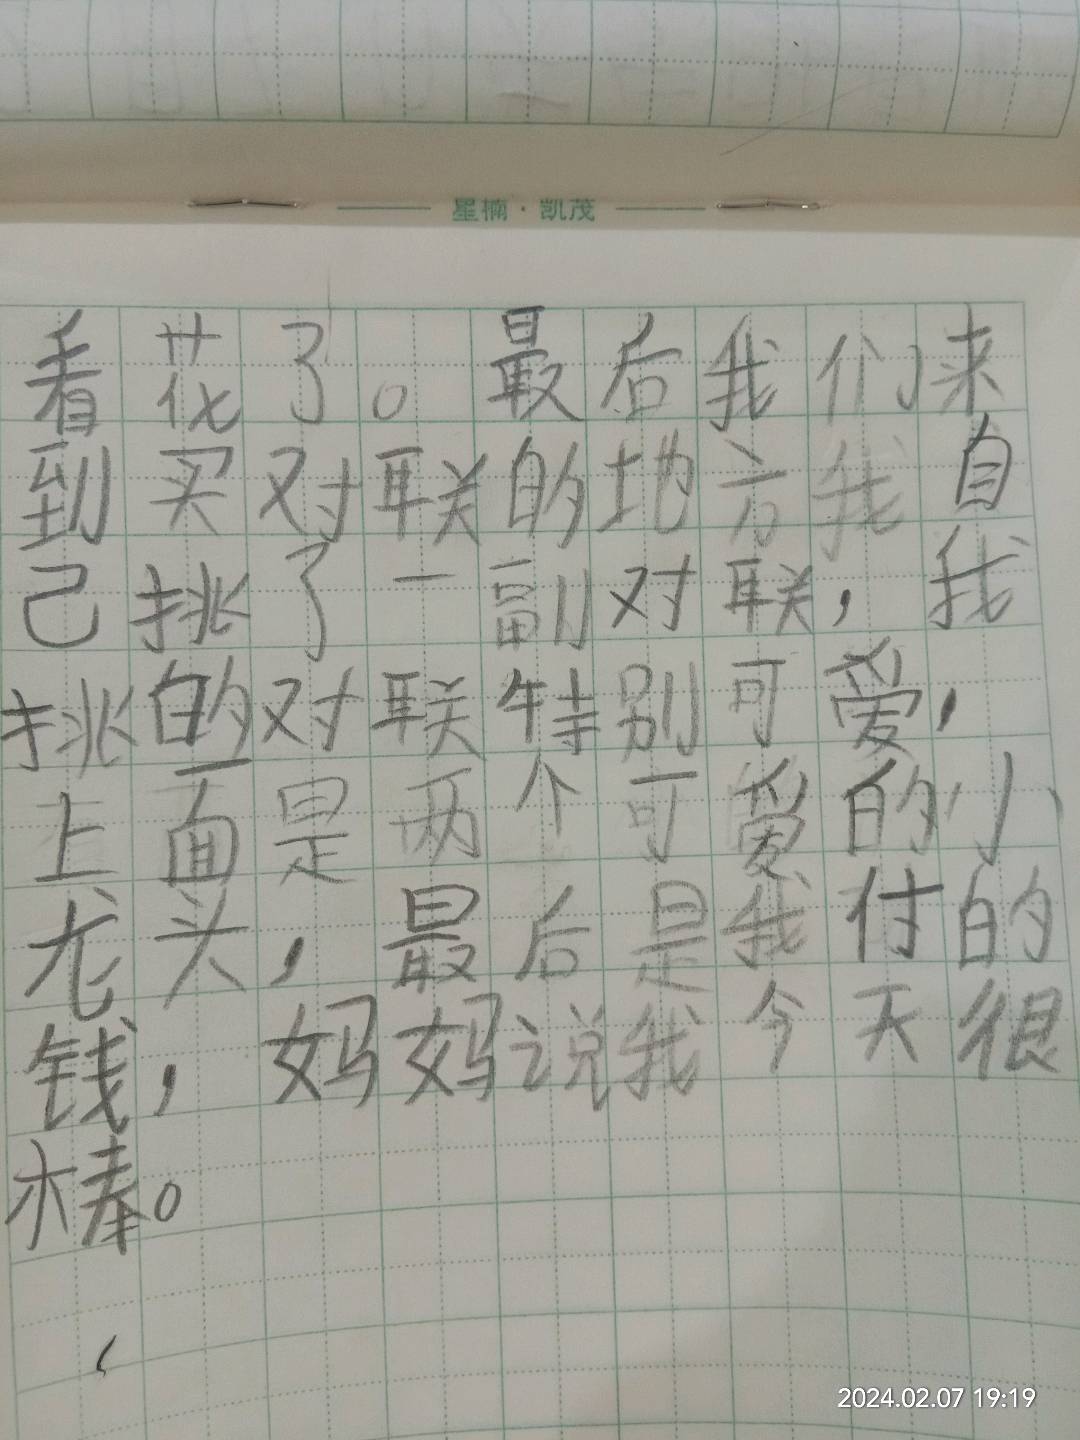 星楠·凯茂
看花了。最后我们来
到买对联的地方我自
己挑了一副对联，我
挑的对联特别可爱，
上面是两个可爱的小
龙头，最后是我付的
钱，妈妈说我今天很
棒。
2024.02.07 19:19